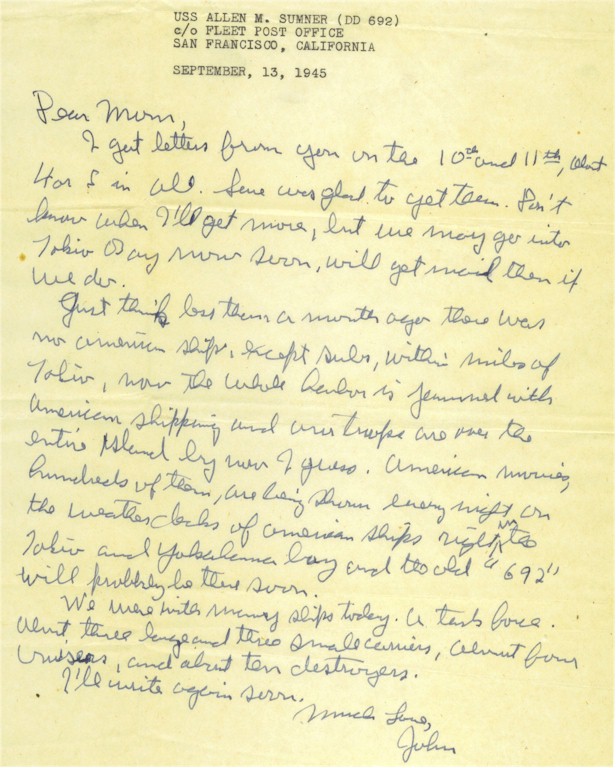 USS ALLEN M. SUMNER (DD 692)
c/o FLEET POST OFFICE
SAN FRANCISCO, CALIFORNIA
SEPTEMBER, 13, 1945
Dear Mom,
I got letters from you on the 10th and 11th, about
4 or 5 in all. Sure was glad to get them. Don't
know when I'll get more, but we may go into
Tokio Bay now soon, will get mail then if
we do.
Just think less than a month ago there was
no american ship, except subs, within miles of
Tokio, now the whole harbor is jammed with
american shipping and our troops are over the
entire Island by now I guess. American movies,
hundreds of them, are being shown every night on
the weatherdecks of american ships right in
Tokio and Yokahama bay and the old "692"
will probbly be there soon.
We were with many ships today. A task force.
About, three large and three small carriers, about four
cruisers, and about ten destroyers.
I'll write again soon.
Much Love,
John